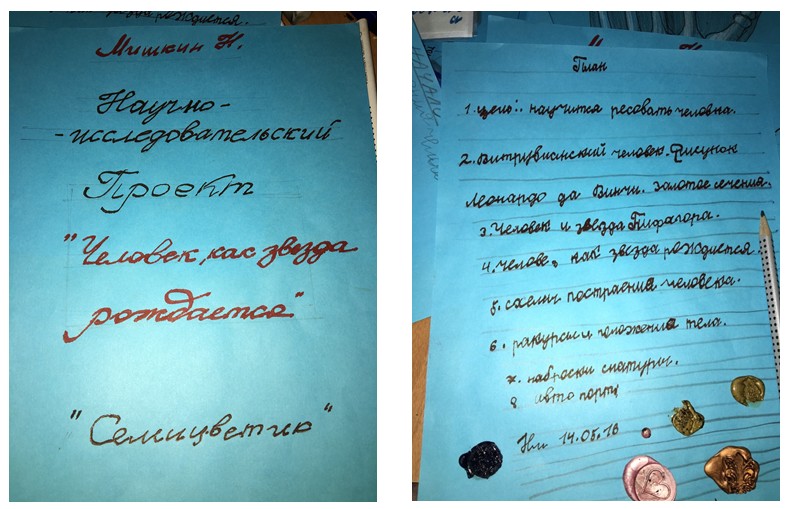 Мишкин Н.
Научно-
-исследовательский
Проект
"Человек, как звезда
рождается"
"Семицветик"
План
1. цель: научится ресовать человка.
2. Витрувианский человек. Рисунок
Леонардо да Винчи. Золотое сечения.
3. Человек и звезда Пифагора.
4. челове, как звезда рождается.
5. построения человека.
6. ракурсы и положения тела.
7. наброски снатуры.
8 авто
14.05.18